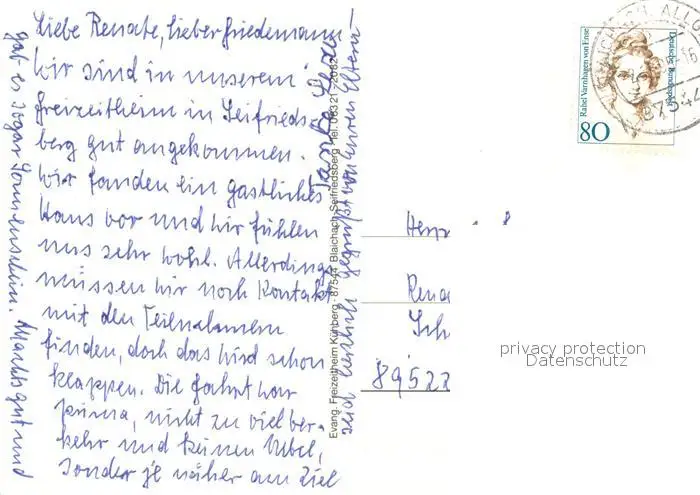 Liebe Renate, lieber Friedemann!
Wir sind in unserem
Freizeitheim in Seifrieds-
berg gut angekommen.
Wir fanden ein gastliches
Haus vor und wir fühlen
uns sehr wohl. Allerdings
müssen wir noch Kontakt
mit den Teilnehmern
finden, doch das wird schon
klappen. Die Fahrt war
prima, nicht zu viel Ver-
kehr und keinen Nebel,
sonder je näher am Ziel
gab es sogar Sonnenschein. Machts gut und
seid herzlich gegrüßt von euren Eltern!
Evang. Freizeitheim Künberg - 87544 Blaichach-Seifriedsberg Tel. 08321-2082
Rahel Varnhagen von Ense
Deutsche Bundespost
80
BLAICHACH, ALLG
87544
Herrn
Rena
Sch
89522
privacy protection
Datenschutz